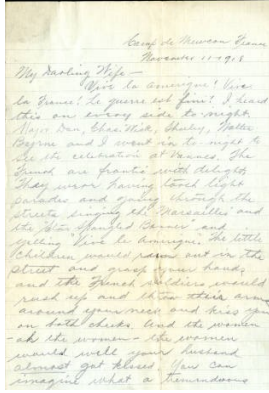 Camp de Meucon France
November 11-1918
My Darling Wife—
Vive la amerique! Vive
la France! Le guerre est fini! I heard
this on every side to-night.
Major Dan, Chas. Wick, Shurley, Walter
Byrne and I went in to-night to
see the celebration at Vannes. The
French are frantic with delight.
They were having torch light
parades and going through the
streets singing the Marsailles and
the Star Spangled Banner and
yelling Vive le amerique. The little
children would run out in the
street and grasp your hand,
and the French soldiers would
rush up and throw their arms
around your neck and kiss you
on both cheeks. And the women
— ah the women — the women
would well your husband
almost got kissed. You can
imagine what a tremendous